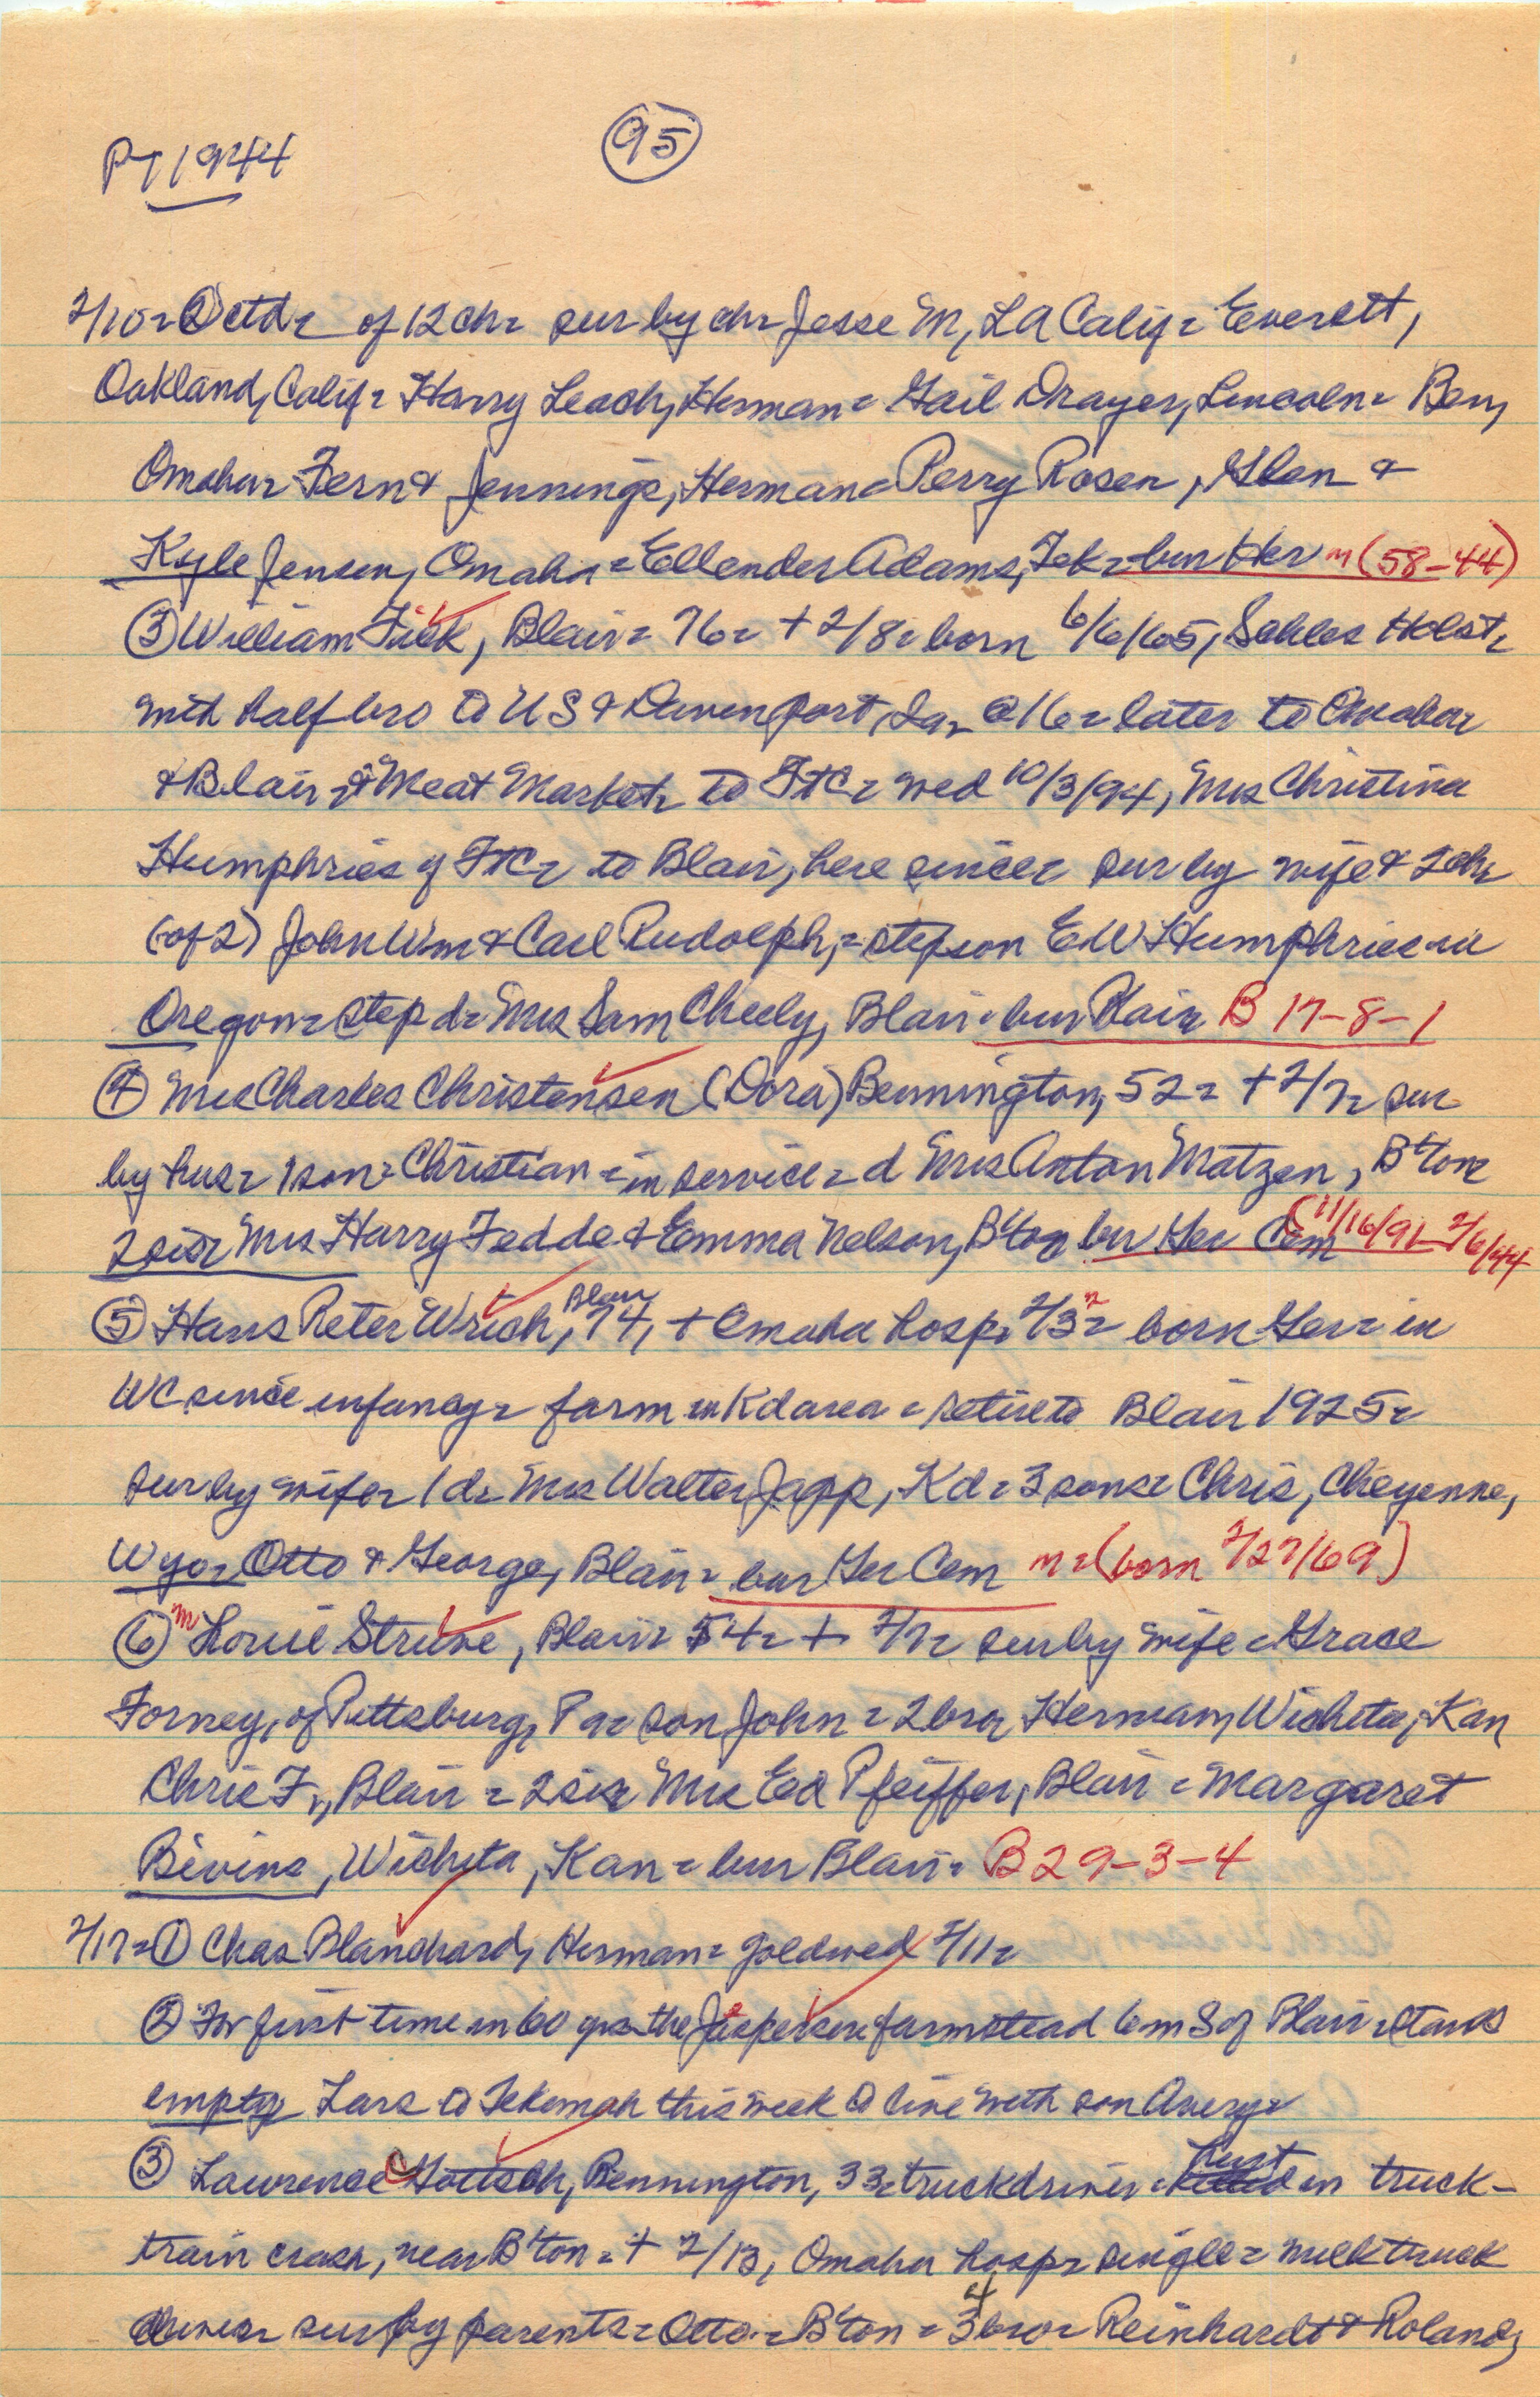 PT 1944
95
2/10 = ② ctd = of 12 ch = sur by ch = Jesse M, LA Calif = Everett,
Oakland, Calif = Harry Leach, Herman = Gail Drayer, Lincoln = Ben,
Omaha = Fern & Jennings, Herman = Perry Rosen, Glen &
Kyle Jensen, Omaha = Ellender Adams, Tek = bur Her m (58-44)
③ William Fick, Blair = 76 = + 2/8 = born 6/6/65, Schles Holst =
with half bro to US & Davenport, Ia = @ 16 = later to Omaha
& Blair = Meat Market = to FtC = wed 10/3/94, Mrs Christina
Humphries of FtC = to Blair, here since = sur by wife & 2 ch =
(of 2) John Wm & Carl Rudolph, = stepson E W Humphries in
Oregon = step d = Mrs Sam Cheely, Blair = bur Blair B 17-8-1
④ Mrs Charles Christensen (Dora) Bennington, 52 = + 2/7 = sur
by hus = 1 son = Christian = in service = d Mrs Anton Matzen, B'ton =
2 sis = Mrs Harry Fedde & Emma Nelson, B'ton bur Ger Cem (11/16/91 - 2/6/44
⑤ Hans Peter Wrich, Blair, 74, + Omaha hosp = 2/3 = born Ger = in
WC since infancy = farm in Kd area = retire to Blair 1925 =
sur by wife = 1 d = Mrs Walter Japp, Kd = 3 sons = Chris, Cheyenne,
Wyo = Otto & George, Blair = bur Ger Cem m = (born 2/27/69)
⑥ m Louie Struve, Blair = 54 = + 2/7 = sur by wife = Grace
Forney, of Pittsburg, Pa = son John = 2 bro = Herman, Wichita, Kan
Chris F, Blair = 2 sis = Mrs Ed Pfeiffer, Blair = Margaret
Bivins, Wichita, Kan = bur Blair = B 29-3-4
2/17 = ① Chas Blanchard, Herman = gold wed 2/11 =
② For first time in 60 yrs = the Jespersen farmstead 6 m S of Blair = stands
empty Lars to Tekamah this week to live with son Avery =
③ Lawrence Gottsch, Bennington, 33 = truck driver = hurt in truck-
train crash, near B'ton = + 2/13, Omaha hosp = single = milk truck
driver = sur by parents = Otto = B'ton = 4 bro = Reinhardt & Roland,